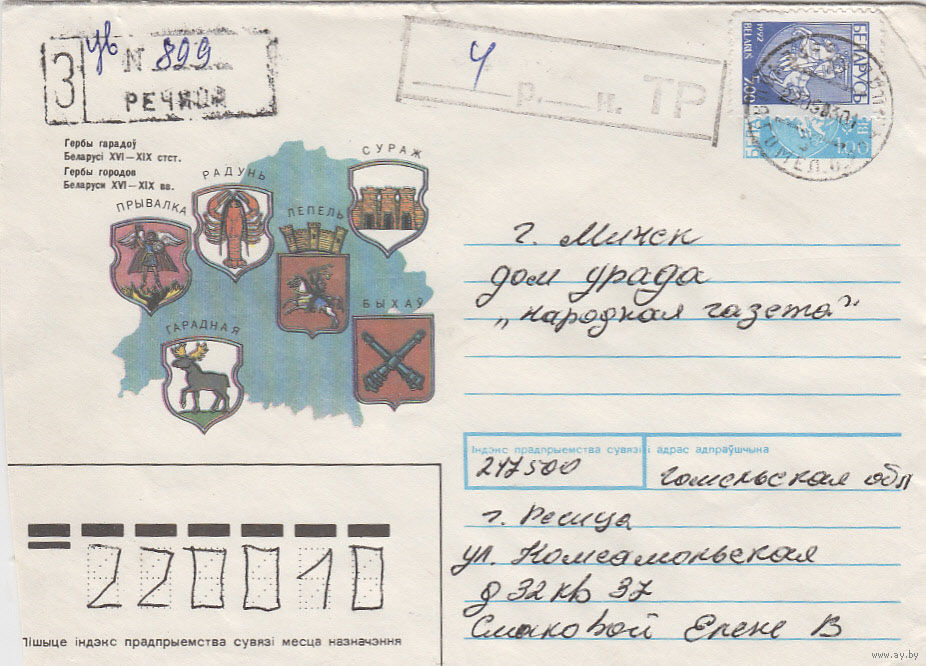 З
ув
N 899
РЕЧИЦА
Ч
р. к. ТР
БЕЛАРУСЬ
1992 BELARUS
Гербы гарадоў
Беларусі XVI—XIX стст.
Гербы городов
Беларуси XVI—XIX вв.
СУРАЖ
РАДУНЬ
ПРЫВАЛКА
ЛЕПЕЛЬ
БЫХАЎ
ГАРАДНАЯ
г. Минск
дом урада
„народная газета"
Індэкс прадпрыемства сувязі і адрас адпраўшчына
247500
гомельская обл
г. Речица
ул. Комсамольская
д 32 кв 37
Елене В
220010
Пішыце індэкс прадпрыемства сувязі месца назначэння
www.ay.by